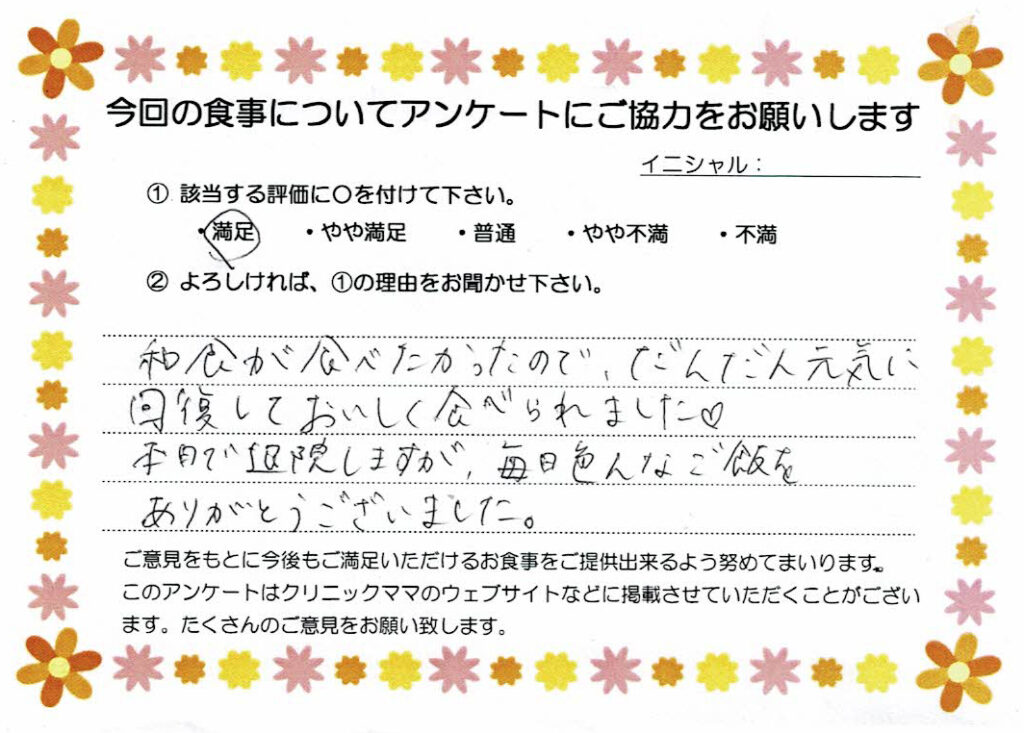 今回の食事についてアンケートにご協力をお願いします
イニシャル：
① 該当する評価に〇を付けて下さい。
・満足 ・やや満足 ・普通 ・やや不満 ・不満
② よろしければ、①の理由をお聞かせ下さい。
和食が食べたかったので、だんだん元気に
回復しておいしく食べられました♡
本日で退院しますが、毎日色んなご飯を
ありがとうございました。
ご意見をもとに今後もご満足いただけるお食事をご提供出来るよう努めてまいります。
このアンケートはクリニックママのウェブサイトなどに掲載させていただくことがござい
ます。たくさんのご意見をお願い致します。